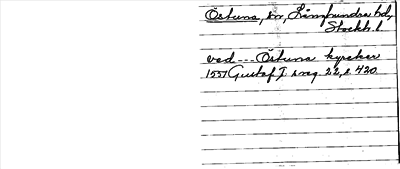 Östuna, sn, Långhundra hd,
Stockh. l.
ved --- Östuna kyrckor
1557 Gustaf I s reg. 22, s. 420.